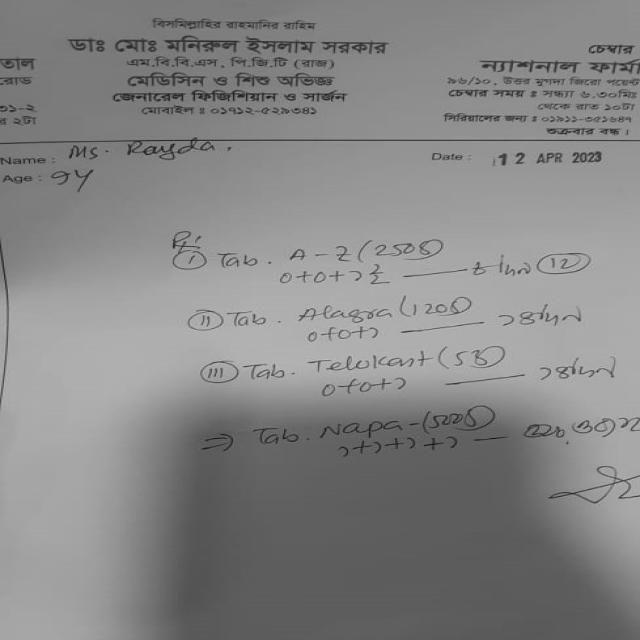 বিসমিল্লাহির রাহমানির রাহিম
ডাঃ মোঃ মনিরুল ইসলাম সরকার
এম.বি.বি.এস, পি.জি.টি (রাজ)
মেডিসিন ও শিশু অভিজ্ঞ
জেনারেল ফিজিশিয়ান ও সার্জন
মোবাইল : ০১৭১২-৫২৯৩৪১
তাল
রোড
৩১-২
২টা
চেম্বার
ন্যাশনাল ফার্মা
৯৬/১০, উত্তর মুগদা জিরো পয়েন্ট
চেম্বার সময় : সন্ধ্যা ৬.৩০মিঃ
থেকে রাত ১০টা
সিরিয়ালের জন্য : ০১৯১১-৩৫১৬৪৭
শুক্রবার বন্ধ।
Name : Ms. Rayda.
Date : 12 APR 2023
Age : 9Y
Rx:
(i) Tab. A-Z (250)
0+0+
(12)
(ii) Tab. Alagra (120)
0+0+১ — ১৪দিন
(iii) Tab. Telukast (5)
0+0+১ — ১৪দিন
⇒ Tab. Napa-(500)
১+১+১+১ —